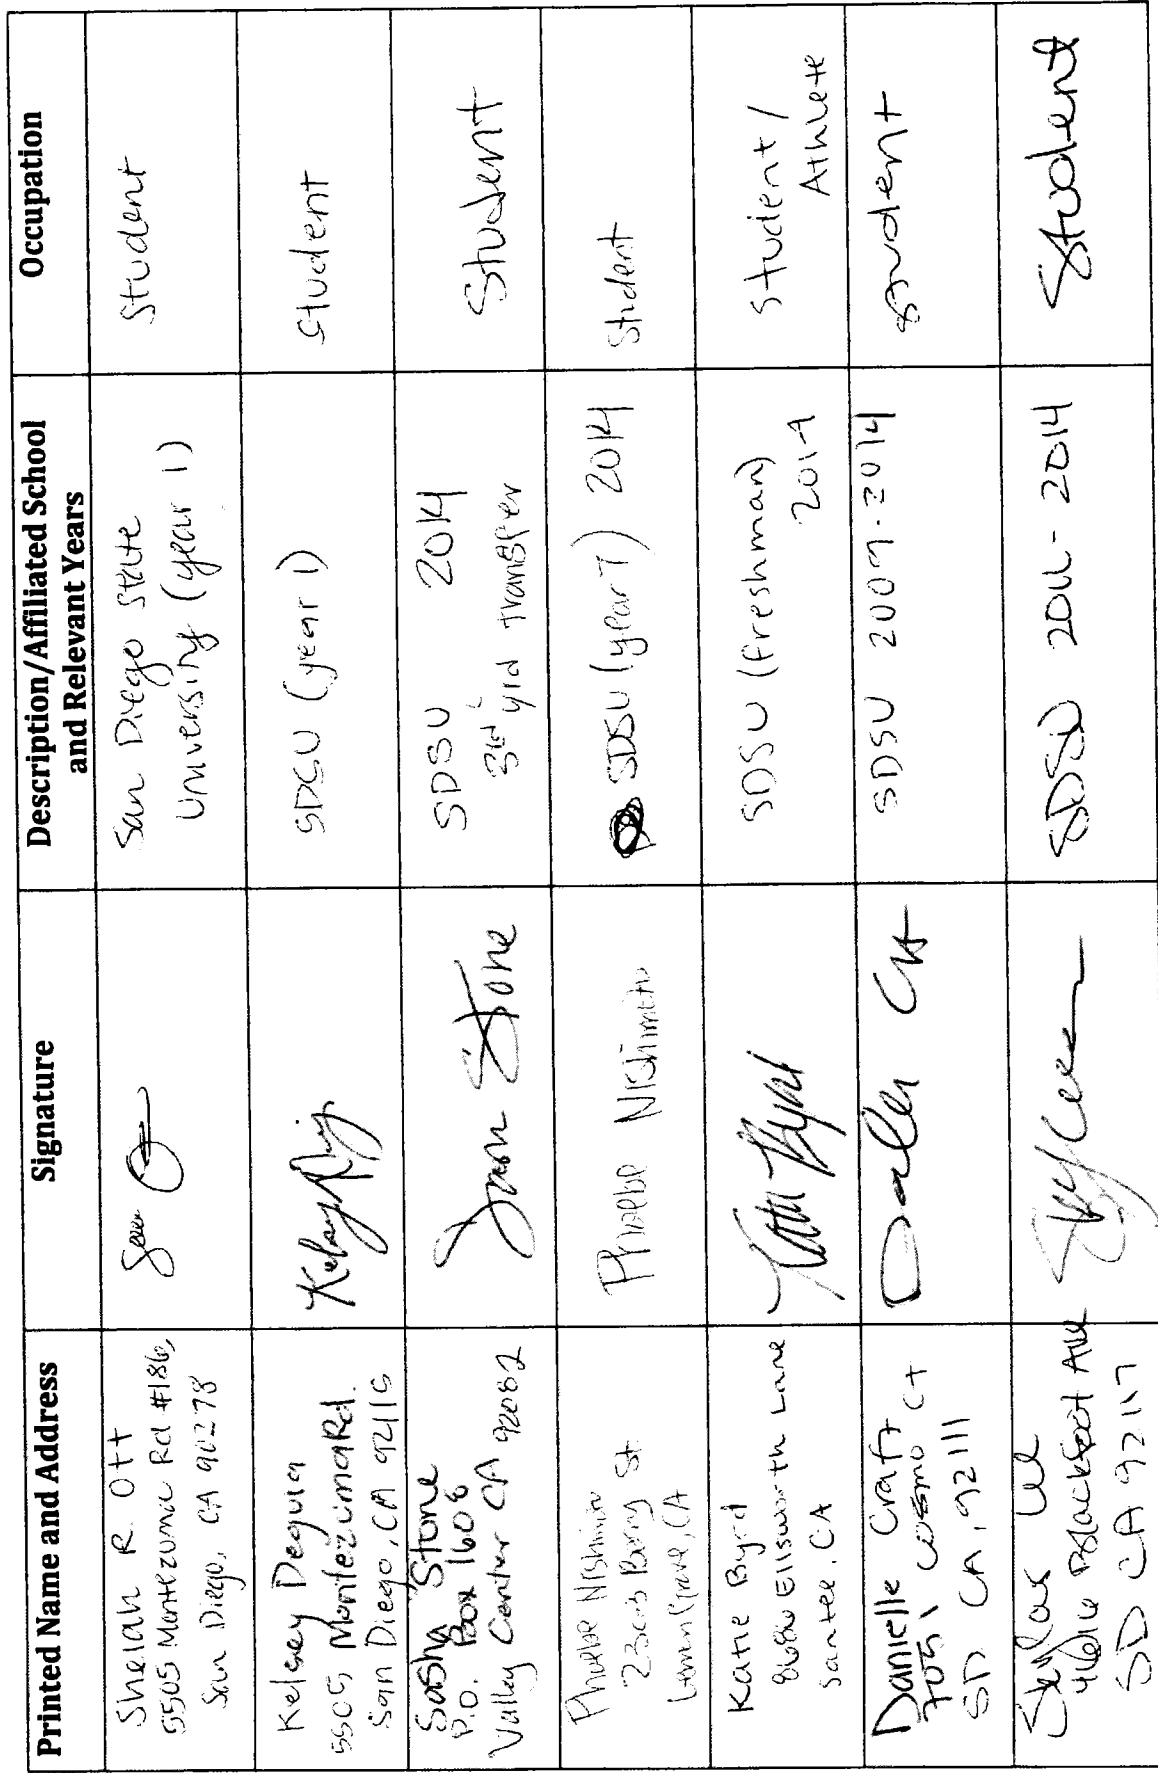 Printed Name and Address
Signature
Description/Affiliated School
and Relevant Years
Occupation
Shelah R. Ott
5505 Montezuma Rd #186,
San Diego, CA 90278
San Diego State
University (year 1)
Student
Kelsey Deguia
5505 Montezuma Rd.
San Diego, CA 92115
SDSU (year 1)
student
Sasha Stone
P.O. Box 1608
Valley Center CA 92082
Stone
SDSU 2014
3rd yrd transfer
Student
Phoebe Nishimoto
Berry St.
Lemon Grove, CA
Phoebe Nishimoto
SDSU (year 7) 2014
Student
Katie Byrd
Ellsworth Lane
Santee, CA
Katie Byrd
SDSU (freshman)
2014
student /
Athlete
Danielle Craft
7051 Cosmo Ct
SD CA, 92111
SDSU 2009-2014
student
Lee
Blackfoot Ave
SD CA 92117
SDSU 2011-2014
Student